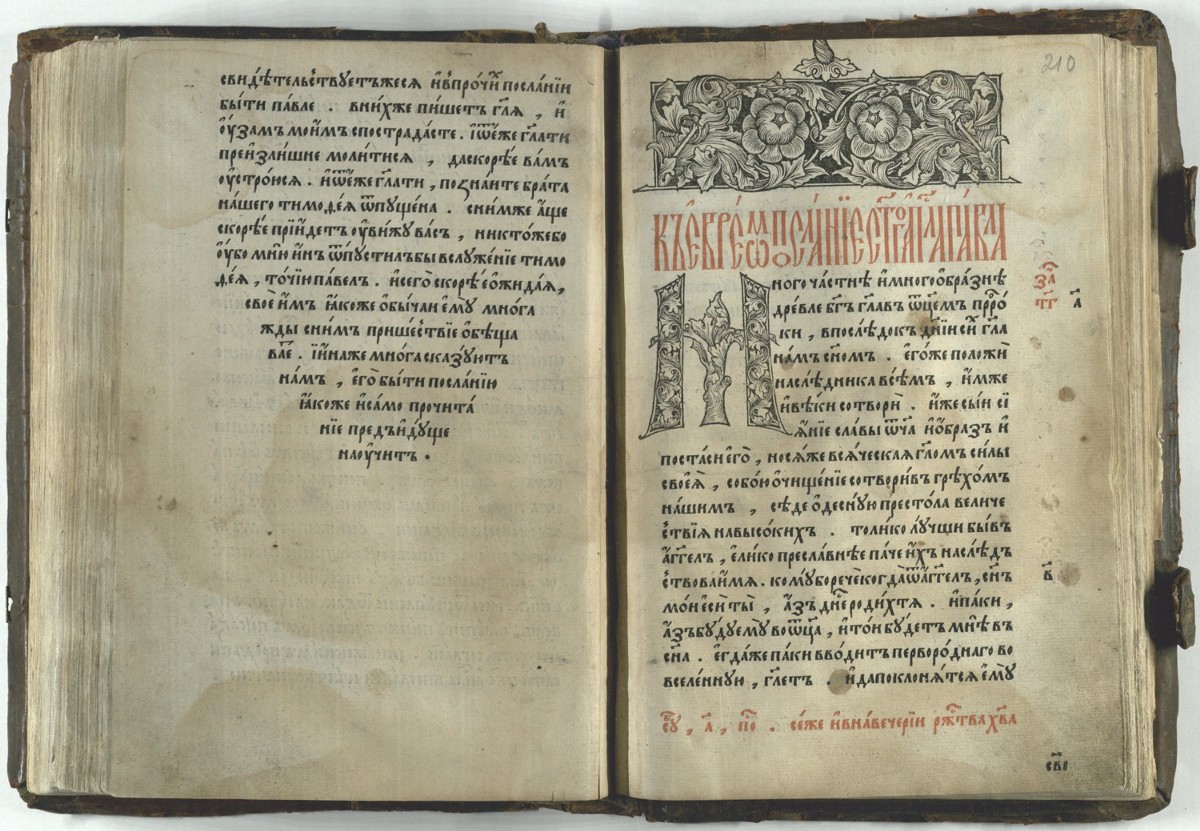 свидѣ́тельствуетъжеся и҆впро́чїи посла́нїи
бы́ти па́вле . вни́хже пи́шетъ гл҃я , и҆
оу҆́замъ мои҆́мъ спострада́сте . і҆ѿе́же гл҃ати
преи҆зли́шне моли́тися , даскорѣ́е ва́мъ
оу҆стро́юся . и҆ѿе́же гл҃ати , позна́ите бра́та
на́шего тимоѳе́я ѿпуще́на . сни́мже а҆́ще
скорѣ́е прїи́детъ оу҆ви́жу ва́съ , никто́жебо
оу҆́бо мню̀ и҆́нъ ѿпусти́лъбы вслуже́нїе тимо
ѳе́я , то́чїю па́велъ . и҆сего̀ скорѣ́е ѡ҆жида́я ,
свое́ и҆мъ ꙗ҆́коже ѻ҆бы́чаи є҆му̀ мно́га
жды сни́мъ прише́ствїе ѻ҆бѣща
ва́е . і҆и҆на́же мно́га сказу́ютъ
на́мъ , є҆го̀ бы́ти посла́нїю
ꙗ҆́коже и҆са́мо прочита́
нїе предъи҆ду́ще
наоу҆чи́тъ .
210
КЪЕВРЕѠМ ПОСЛАНИЕ СТГО АПЛА ПАВЛА
Мно́гоча́стнѣ и҆многоѻ҆бра́знѣ
дре́вле бг҃ъ гл҃авъ ѻ҆тце́мъ прⷪ҇ро́
ки , впослѣ́докъ дні́и си́хъ гл҃а
на́мъ сн҃омъ . є҆го́же положѝ
наслѣ́дника всѣ́мъ , и҆́мже
и҆вѣ́ки сотворѝ . и҆́же сы́и сї
ѧ҆́нїе сла́вы ѻ҆́тча и҆ѻ҆́бразъ и҆
поста́си є҆го̀ , нося́же вся́ческая гл҃омъ си́лы
своея̀ , собо́ю ѻ҆чище́нїе сотвори́въ грѣхо́мъ
на́шимъ , сѣ́де ѻ҆десну́ю престо́ла вели́че
ствїя навысо́кихъ . толи́ко лу́чши бы́въ
а҆́гг҃лъ , є҆ли́ко пресла́внѣе па́че и҆́хъ наслѣ́дъ
ствова и҆́мя . кому́бо рече́ когда̀ ѿа҆́гг҃лъ , сн҃ъ
мо́и є҆сѝ ты̀ , а҆́зъ дне́сь роди́хтя . и҆па́ки ,
а҆́зъ бу́ду є҆му̀ во ѻ҆тца̀ , и҆то́и бу́детъ мнѣ̀ въ
сн҃а . є҆гда́же па́ки вво́дитъ перворо́днаго во
вселе́нную , гл҃етъ . и҆да покло́нятся є҆му̀
за҃ч
тг҃
а҃
в҃
сеже и҆внавече́рїи ржⷭ҇тва̀ хв҃а